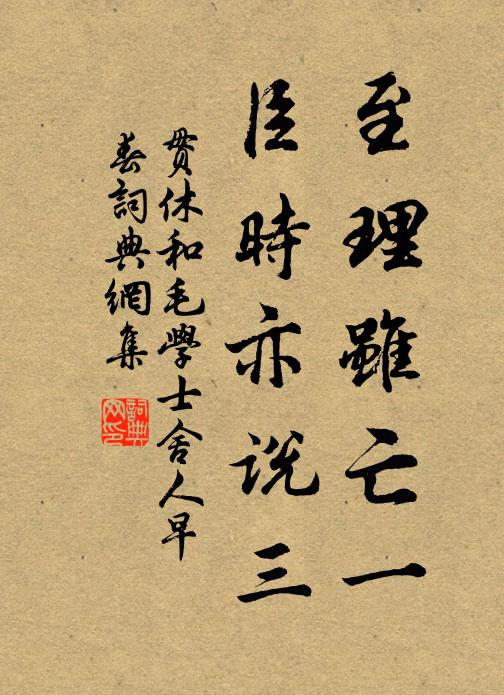 至理雖亡一
臣時亦説三
貫休和毛學士舍人早
春詞典網集
詞典
网印